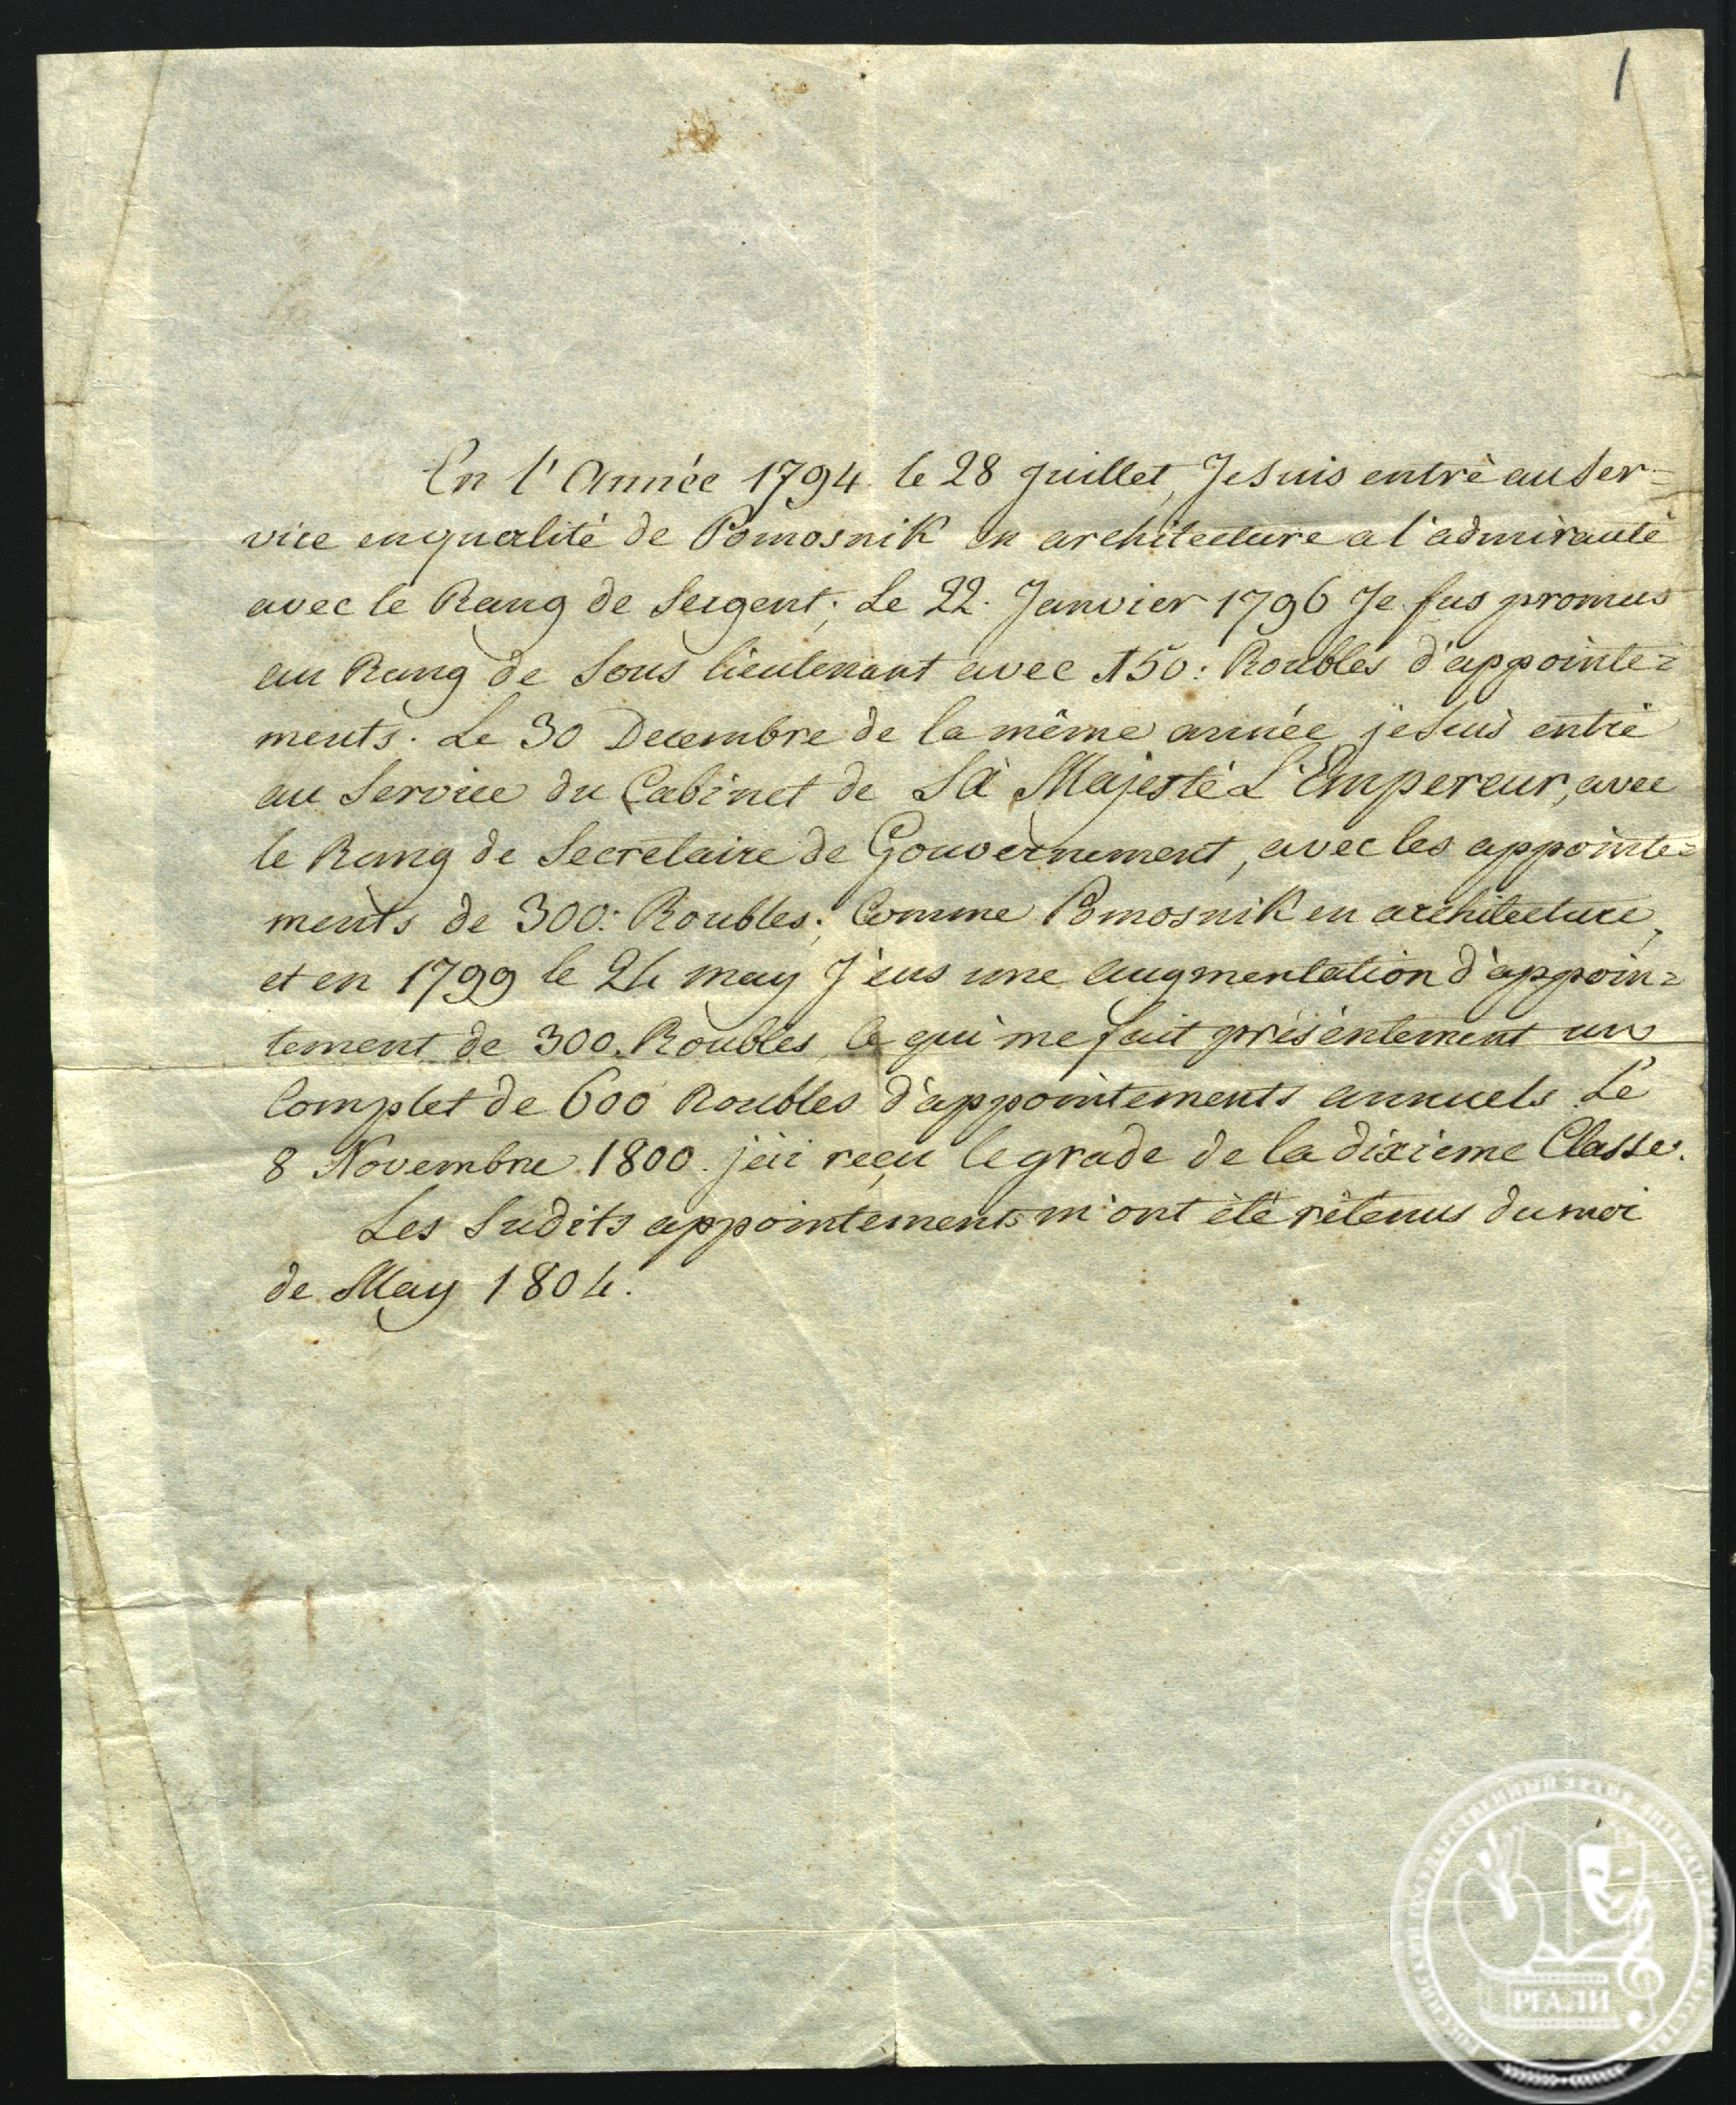 1
En l'Année 1794 le 28 Juillet, Je suis entré au Ser=
vice en qualité de Pomosnik en architecture a l'admirauté
avec le Rang de Sergent; Le 22. Janvier 1796 Je fus promus
au Rang de Sous lieutenant avec 150: Roubles d'appointe=
ments. Le 30 Decembre de la même année je suis entré
au Service du Cabinet de Sa Majesté L'Empereur, avec
le Rang de Secretaire de Gouvernement, avec les appointe=
ments de 300: Roubles; Comme Pomosnik en architecture,
et en 1799 le 24 may J'eus une augmentation d'appoin=
tement de 300. Roubles, ce qui me fait présentement un
Complet de 600 Roubles d'appointements annuels. Le
8 Novembre 1800. j'ai reçu le grade de la dixieme Classe.
Les Sudits appointements m'ont été rétenus du moi
de May 1804.
РГАЛИ